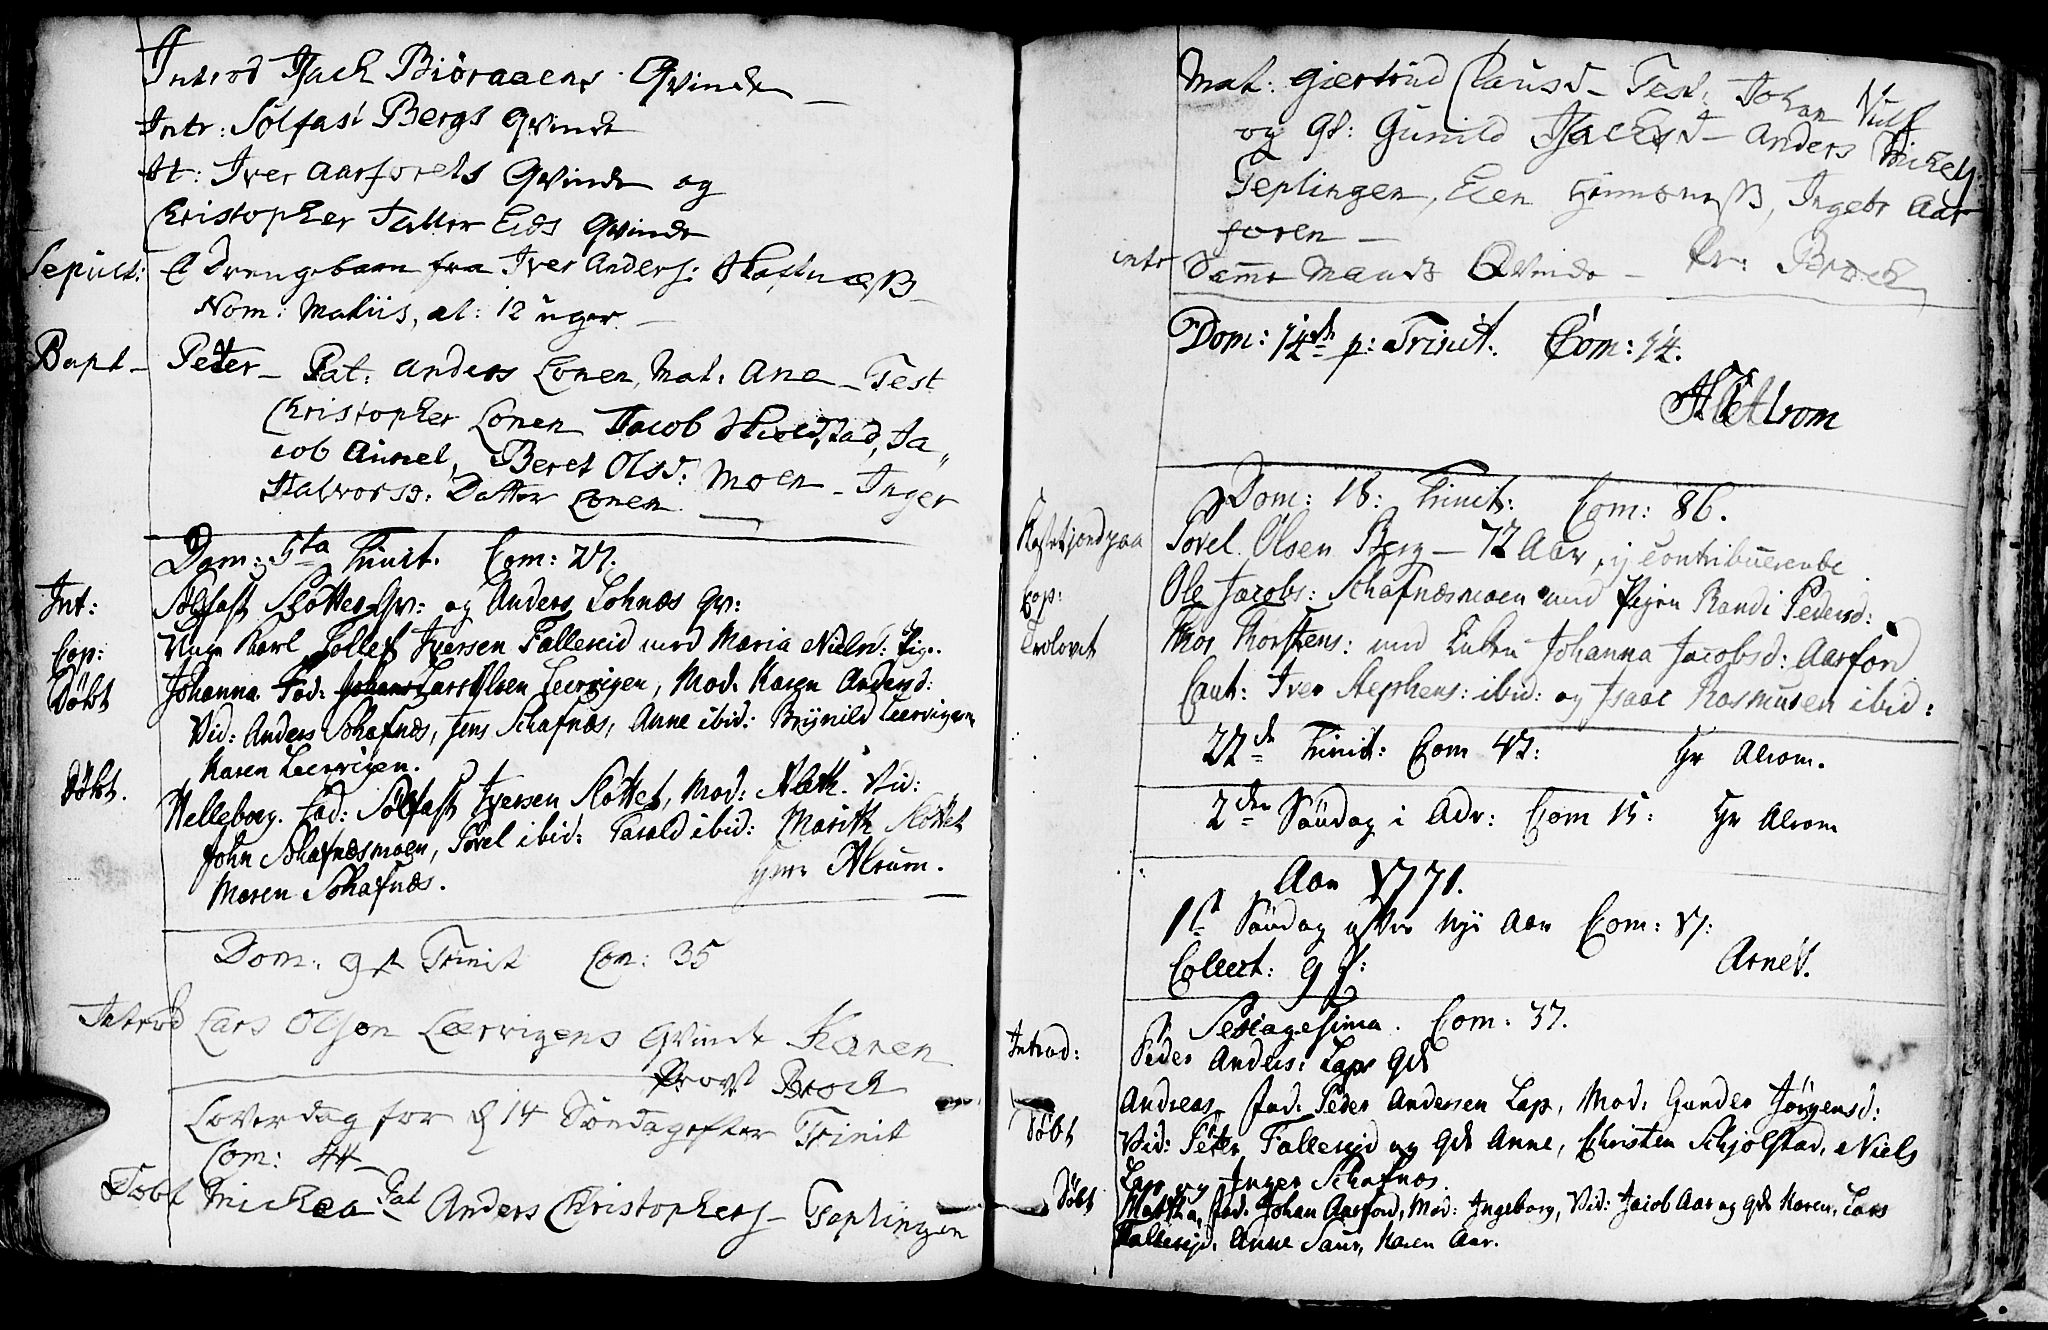 Introd Isach Biøraaens Qvinde
Intr: Solfast Bergs Qvinde
It: Iver Aarforets Qvinde og
Christopher Fætten Eids Qvinde
Sepult: 1 Drengebarn fra Iver Anders:
Nom: Matiis, æt: 12 uger.
Bapt Peter Pat: Anders Lonen, Mat: Ane Test
Christopher Lonen Jacob Ja
cob Aunet, Beret Olsd: Moen Inger
Halvorsd: Datter Lonen
Dom: 5ta Trinit. Com: 27.
Int: Solfast Slottes Qv: og Anders Qv:
Cop: Unge Karl Tollef Iversen Fallesiid med Maria Nielsd: Pige.
Døbt Johanna Fad: Lars Olsen Leervigen, Mod: Karen Andersd:
Vid: Anders Schafnæs, Jens Schafnæs, Anne ibid: Brynild Leervigen
Karen Leervigen.
Døbt. Helleborg. Fad: Solfast Iversen Slottet, Mod: Vid:
John Schafnæsmoen, Povel ibid: ibid: Marith Slottet
Maren Schafnæs. Alrum.
Dom: 9 p Trinit Com: 35
Introd Lars Olsen Leervigens Qvinde Karen
Provst Broch
Løverdag for d 14 Søndag efter Trinit
Com: 44
Døbt Michea Pat Anders Christophers Teplingen
Mat: Giertrud Clausd Test: Johan
og Qv: Gunild Isachsd Anders Michels
Teplingen, Elen Ingebr Aar
foren
intr Samme Mands Qvinde Pr: Broch
Dom: 14de p: Trinit: Com: 14.
Alrom
Dom: 18: Trinit: Com: 86.
Povel Olsen Berg 72 Aar, ej contribuerende
Cop: Ole Jacobs: Schafnæsmoen med Pigen Randi Pedersd:
Trolovet Thor Thorstens: med Enken Johanna Jacobsd: Aarford
Caut: Iver Stephens: ibid: og Isaac Rasmusen ibid:
22de Trinit: Com 47: Hr Alrom.
2den Søndag i Adv: Com 15: Hr Alrom
Aar 1771.
1st Søndag efter nyt Aar Com: 17:
Collect: 9 ß: Arnet.
Sexagesima. Com: 37.
Introd: Peder Anders: Lap
Døbt Andreas, Fad: Peder Andersen Lap, Mod: Gunder Jørgensd:
Vid: Peter Fallesijd og Anne, Christen Schjølstad, Niels
Lap og Inger Schafnæs.
Døbt Fad: Johan Aarford, Mod: Ingeborg, Vid: Jacob Aar og Karen, Lars
Fallesijd, Anne Saur, Karen Aar.